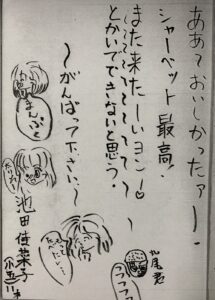 ああ、おいしかったァー。
シャーベット最高!
また来たーいョン!
とかいてできないと思う。
〜がんばって下さい、〜
まんぷく
池田佳菜子
(小五)
たべたいよ〜
フフフフ